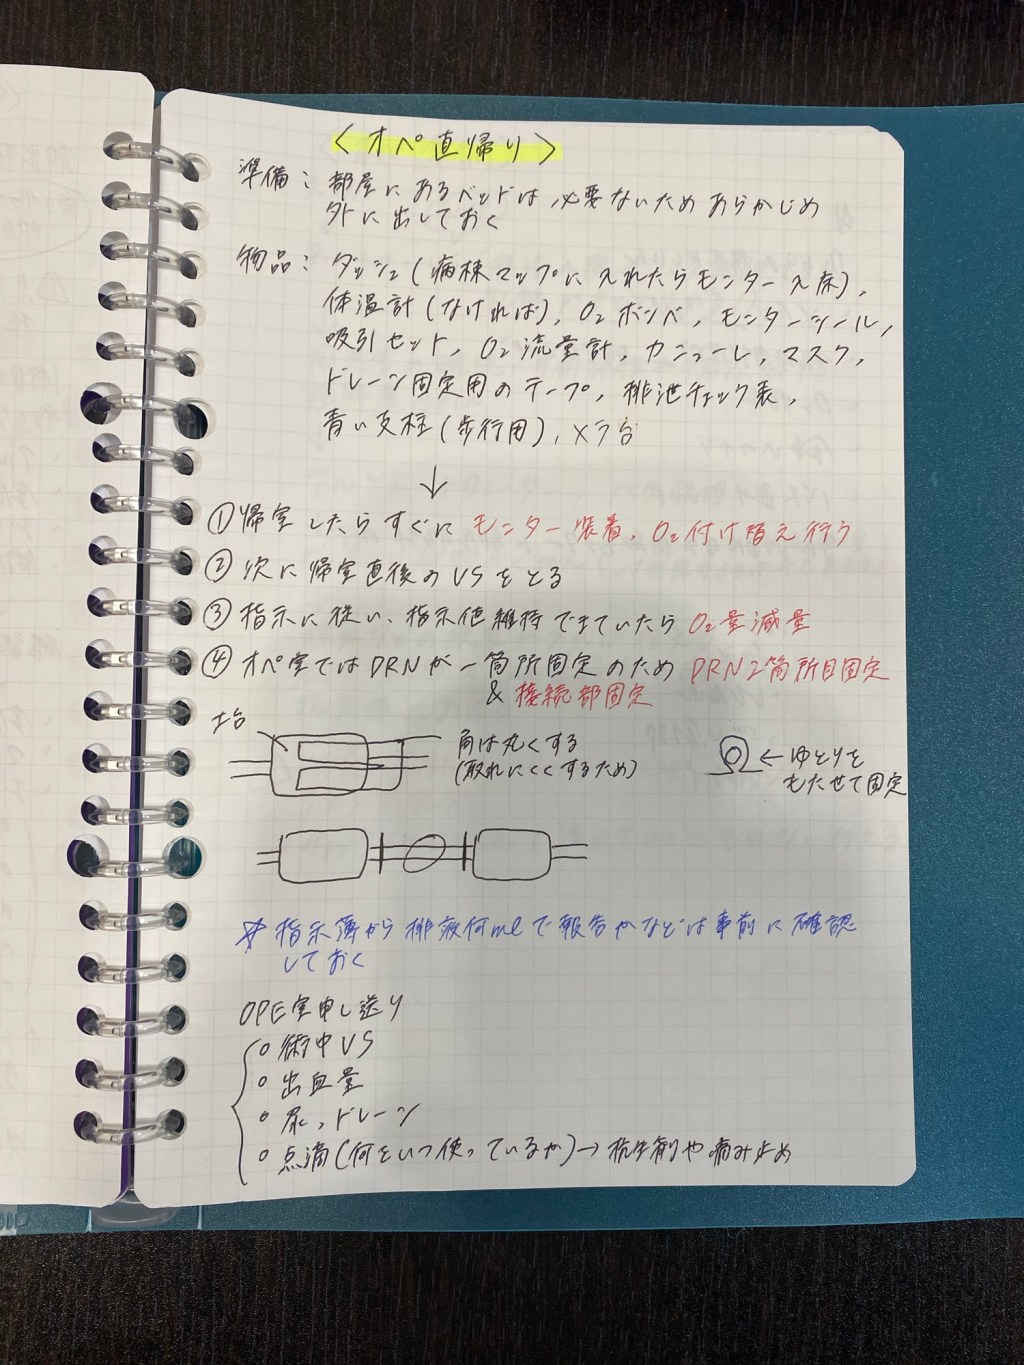 ＜オペ直帰り＞
準備：部屋にあるベッドは必要ないためあらかじめ
外に出しておく
物品：ダッシュ(病棟マップに入れたらモニター入床),
体温計(なければ), O₂ボンベ, モニターシール,
吸引セット, O₂流量計, カニューレ, マスク,
ドレーン固定用のテープ, 排泄チェック表,
青い支柱(歩行用), メラ台
↓
①帰室したらすぐにモニター装着, O₂付け替え行う
②次に帰室直後のVSをとる
③指示に従い、指示値維持できていたらO₂量減量
④オペ室ではDRNが一箇所固定のためDRN2箇所目固定
&接続部固定
土台
角は丸くする
(取れにくくするため)
←ゆとりを
もたせて固定
☆指示簿から排液何mlで報告かなどは事前に確認
しておく
OPE室申し送り
○術中VS
○出血量
○尿、ドレーン
○点滴(何をいつ使っているか)→抗生剤や痛み止め